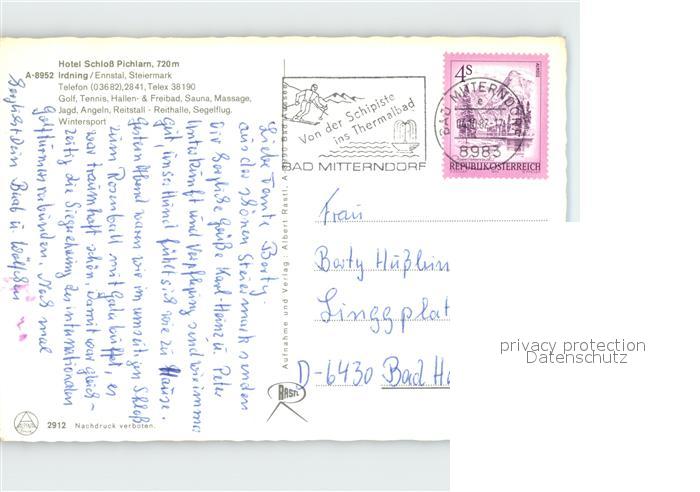 Hotel Schloß Pichlarn, 720m
A-8952 Irdning / Ennstal, Steiermark
Telefon (03682) 2841, Telex 38190
Golf, Tennis, Hallen- & Freibad, Sauna, Massage,
Jagd, Angeln, Reitstall - Reithalle, Segelflug.
Wintersport
Liebe Tante Barty
aus der schönen Steiermark senden
wir herzliche Grüße Karl-Heinz u. Peter
Unterkunft und Verpflegung sind wie immer
gut, unser Hund fühlt sich wie zu Hause.
Gestern Abend waren wir im umseitigen Schloß
zum Rosenball mit Gala buffet, es
war traumhaft schön. Damit war gleich-
zeitig die Siegerehrung des internationalen
Golfturniers verbunden. Noch mal
herzlichst Dein
2912 Nachdruck verboten.
Aufnahme und Verlag: Albert Rastl, A
RASTL
Von der Schipiste
ins Thermalbad
BAD MITTERNDORF
4S
BAD MITTERNDORF
8983
REPUBLIK ÖSTERREICH
Frau
Barty Hußlein
Linggplat
D-6430 Bad He
privacy protection
Datenschutz